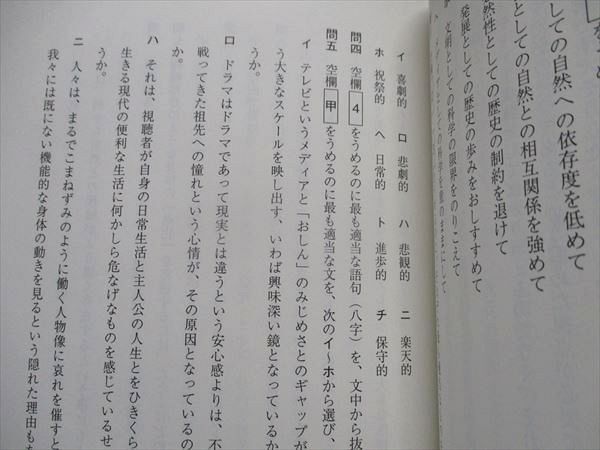 しての自然への依存度を低めて
としての自然との相互関係を強めて
然性としての歴史の制約を退けて
発展としての歴史の歩みをおしすすめて
文明としての科学の限界をのりこえて
イ 喜劇的 ロ 悲劇的 ハ 悲観的 ニ 楽天的
ホ 祝祭的 ヘ 日常的 ト 進歩的 チ 保守的
問四 空欄 4 をうめるのに最も適当な語句(八字)を、文中から抜
問五 空欄 甲 をうめるのに最も適当な文を、次のイ〜ホから選び、
イ テレビというメディアと「おしん」のみじめさとのギャップが
う大きなスケールを映し出す、いわば興味深い鏡となっているか
うか。
ロ ドラマはドラマであって現実とは違うという安心感よりは、不
戦ってきた祖先への憧れという心情が、その原因となっているの
か。
ハ それは、視聴者が自身の日常生活と主人公の人生とをひきくら
生きる現代の便利な生活に何かしら危なげなものを感じているせ
うか。
ニ 人々は、まるでこまねずみのように働く人物像に哀れを催すと
我々には既にない機能的な身体の動きを見るという隠れた理由も